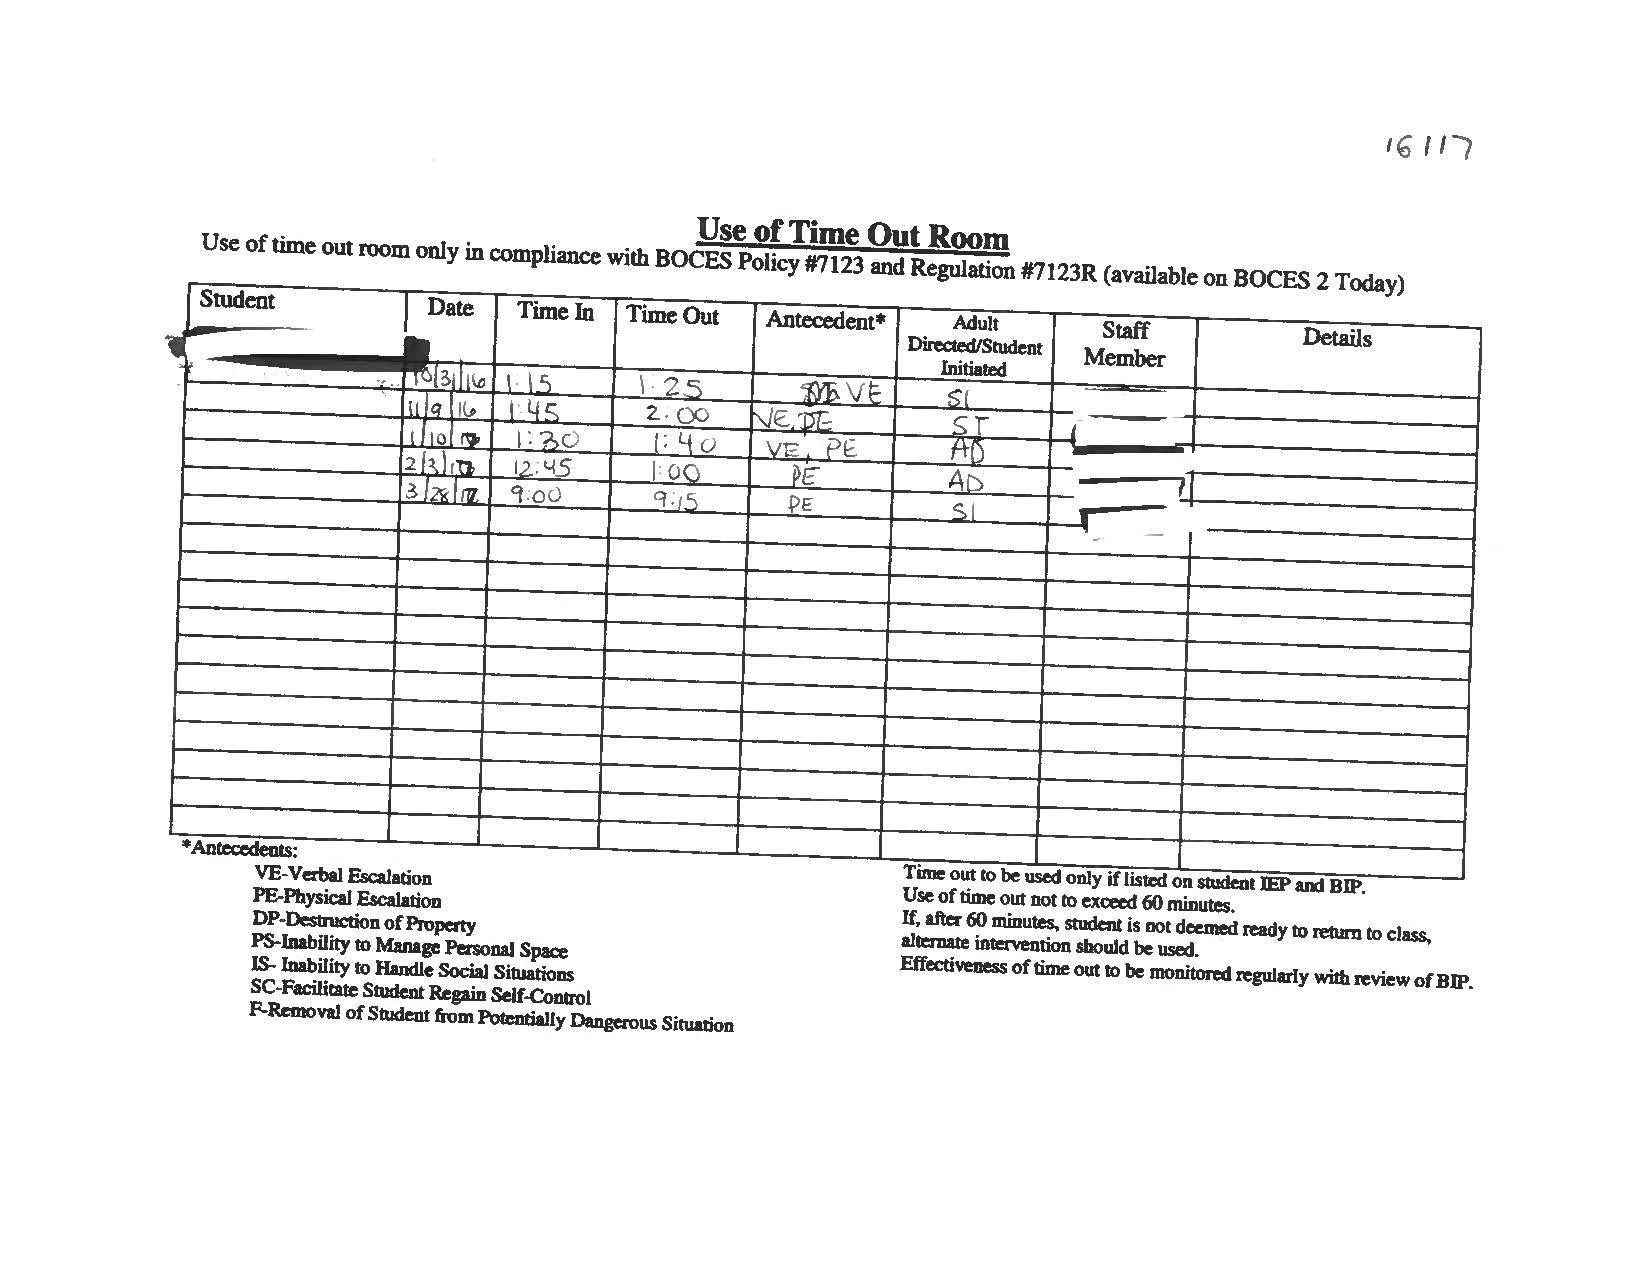 16/17
Use of Time Out Room
Use of time out room only in compliance with BOCES Policy #7123 and Regulation #7123R (available on BOCES 2 Today)
Student Date Time In Time Out Antecedent* Adult Directed/Student Initiated Staff Member Details
10/3/16 1:15 1:25 VE SI
11/9/16 1:45 2:00 VE, PE SI
1/10/17 1:30 1:40 VE, PE AD
2/3/17 12:45 1:00 PE AD
3/28/17 9:00 9:15 PE SI
*Antecedents:
VE-Verbal Escalation
PE-Physical Escalation
DP-Destruction of Property
PS-Inability to Manage Personal Space
IS- Inability to Handle Social Situations
SC-Facilitate Student Regain Self-Control
F-Removal of Student from Potentially Dangerous Situation
Time out to be used only if listed on student IEP and BIP.
Use of time out not to exceed 60 minutes.
If, after 60 minutes, student is not deemed ready to return to class,
alternate intervention should be used.
Effectiveness of time out to be monitored regularly with review of BIP.